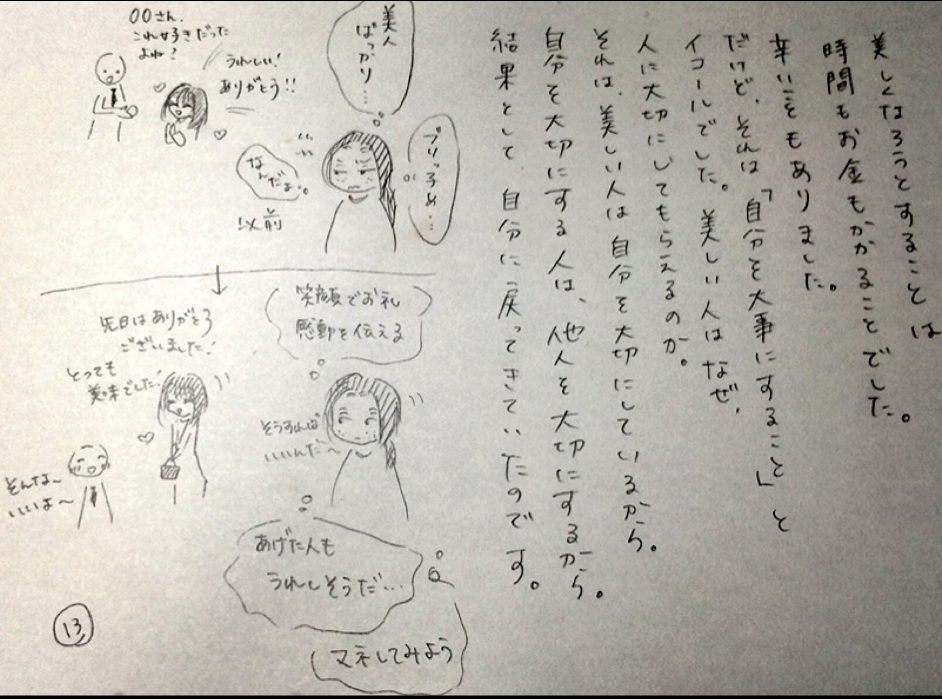 美しくなろうとすることは
時間もお金もかかることでした。
辛いこともありました。
だけど、それは「自分を大事にすること」と
イコールでした。美しい人はなぜ、
人に大切にしてもらえるのか。
それは、美しい人は自分を大切にしているから。
自分を大切にする人は、他人を大切にするから。
結果として、自分に戻ってきていたのです。
美人
ばっかり…
ブリっ子め…
〇〇さん、
これ好きだった
よね?
うれしい!
ありがとう!!
なんだよ…
以前
笑顔でお礼
感動を伝える
先日はありがとう
ございました!
とっても
美味でした!
そうすれば
いいんだ〜
そんな〜
いいよ〜
あげた人も
うれしそうだ…
マネしてみよう
13